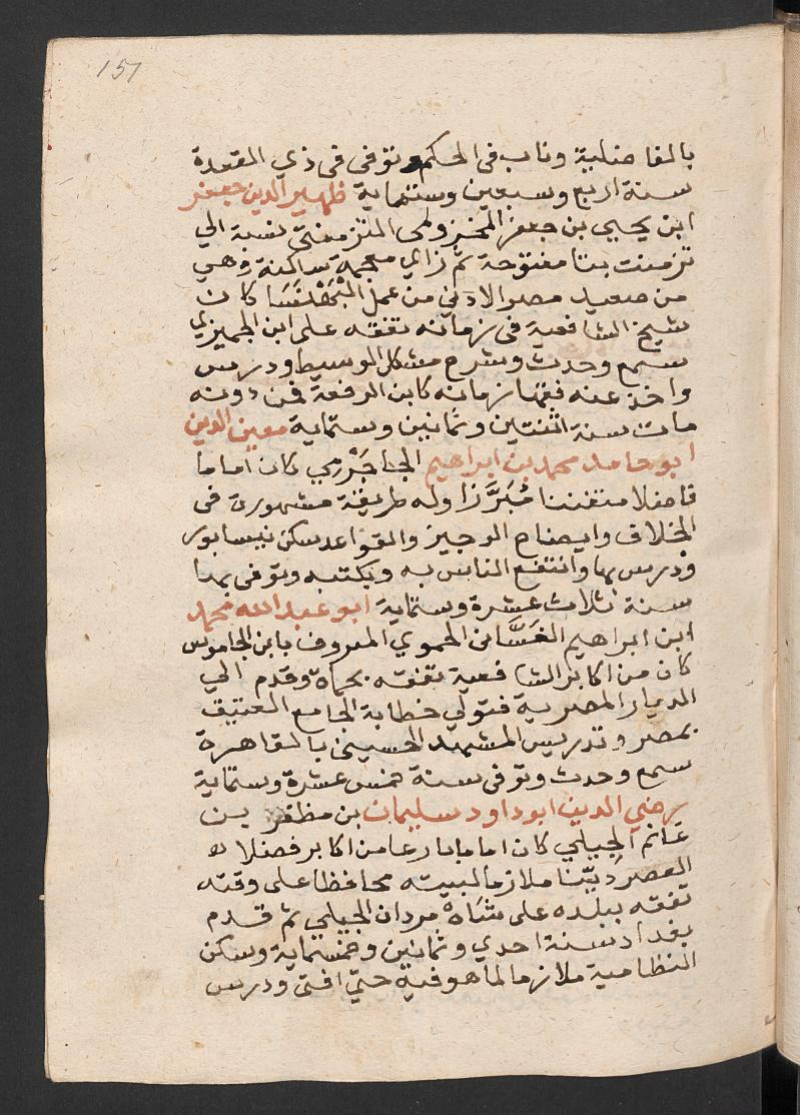 157
بالفاضلية وناب فى الحكم وتوفى فى ذي القعدة
سنة اربع وسبعين وستماية ظهير الدين جعفر
ابن يحيي بن جعفر المخزومى التزمنتى نسبة الي
تزمنت بتا مفتوحة ثم زاي معجمة ساكنة وهي
من صعيد مصر الادني من عمل البَهْنَسَا كان
شيخ الشافعية فى زمانه تفقه على ابن الجميزي
سمع وحدث وشرح مشكل الوسيط ودرس
واخذ عنه فقها زمانه كابن الرفعة فمن دونه
مات سنة اثنتين وثمانين وستماية معين الدين
ابو حامد محمد بن ابراهيم الجاجَرْمِي كان اماما
فاضلا متفننا مُبَرَّزا وله طريقة مشهورة فى
الخلاف وايضاح الوجيز والقواعد سكن نيسابور
ودرس بها وانتفع الناس به وبكتبه وتوفى بها
سنة ثلاث عشرة وستماية ابو عبد الله محمد
ابن ابراهيم الغَسَّانى الحموي المعروف بابن الجاموس
كان من اكابر الشافعية تفقه بحماة وقدم الي
الديار المصرية فتولي خطابة الجامع العتيق
بمصر وتدريس المشهد الحسينى بالقاهرة
سمع وحدث وتوفى سنة خمس عشرة وستماية
رضي الدين ابو داود سليمان بن مظفر بن
غانم الجيلي كان اماما بارعا من اكابر فضلاء
العصر دَيِّنا ملازما لبيته محافظا على وقته
تفقه ببلده على شَاهْ مردان الجيلي ثم قدم
بغداد سنة احدي وثمانين وخمسماية وسكن
النظامية ملازما لما هو فيه حتي افتى ودرس